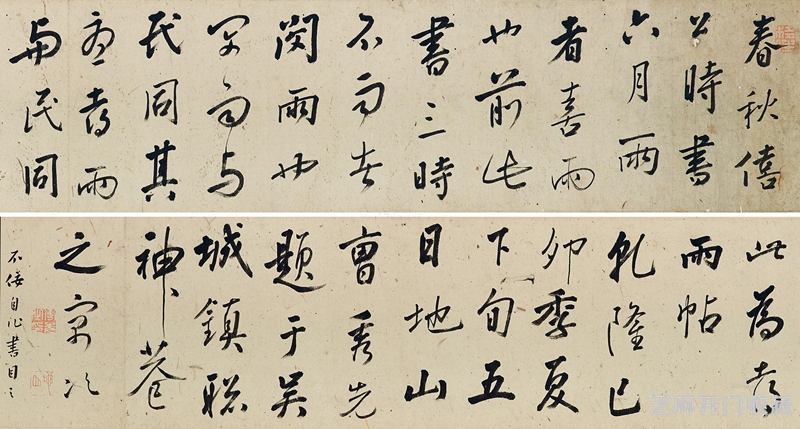 春秋僖
公時書
六月雨
者喜雨
也前此
書三時
不雨者
閔雨也
与
民同其
憂喜雨
与民同
此為喜
雨帖
乾隆己
卯季夏
下旬五
日地山
曹秀先
題于吴
城鎮聪
神菴
之寓次
不佞自作書目之